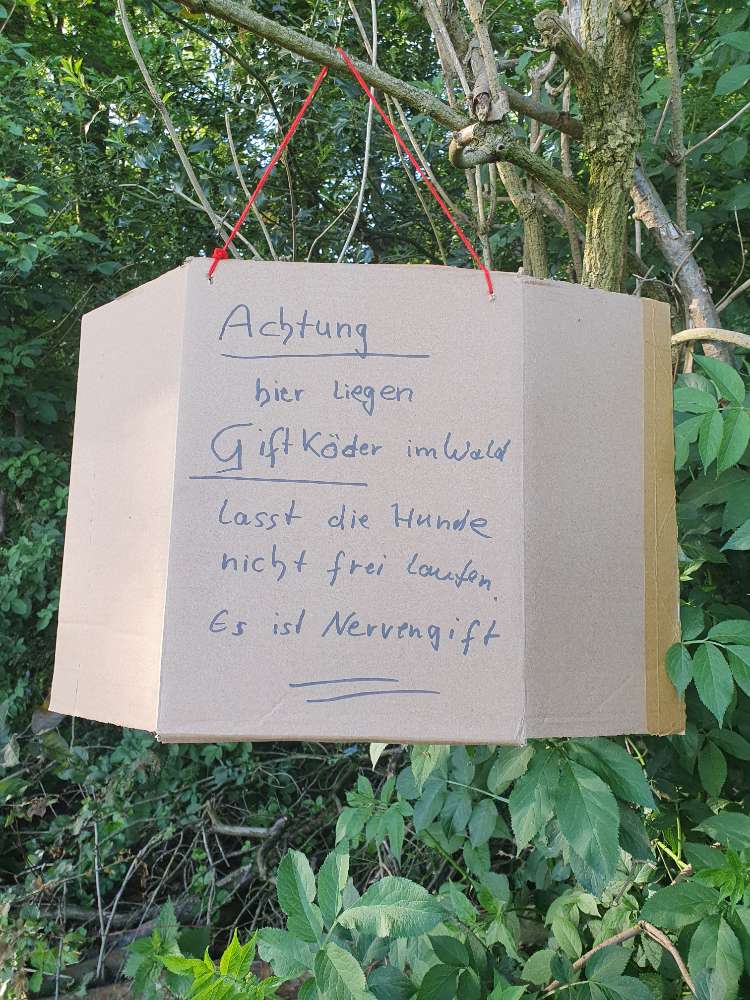 Achtung
hier liegen
Giftköder im Wald
lasst die Hunde
nicht frei laufen.
Es ist Nervengift